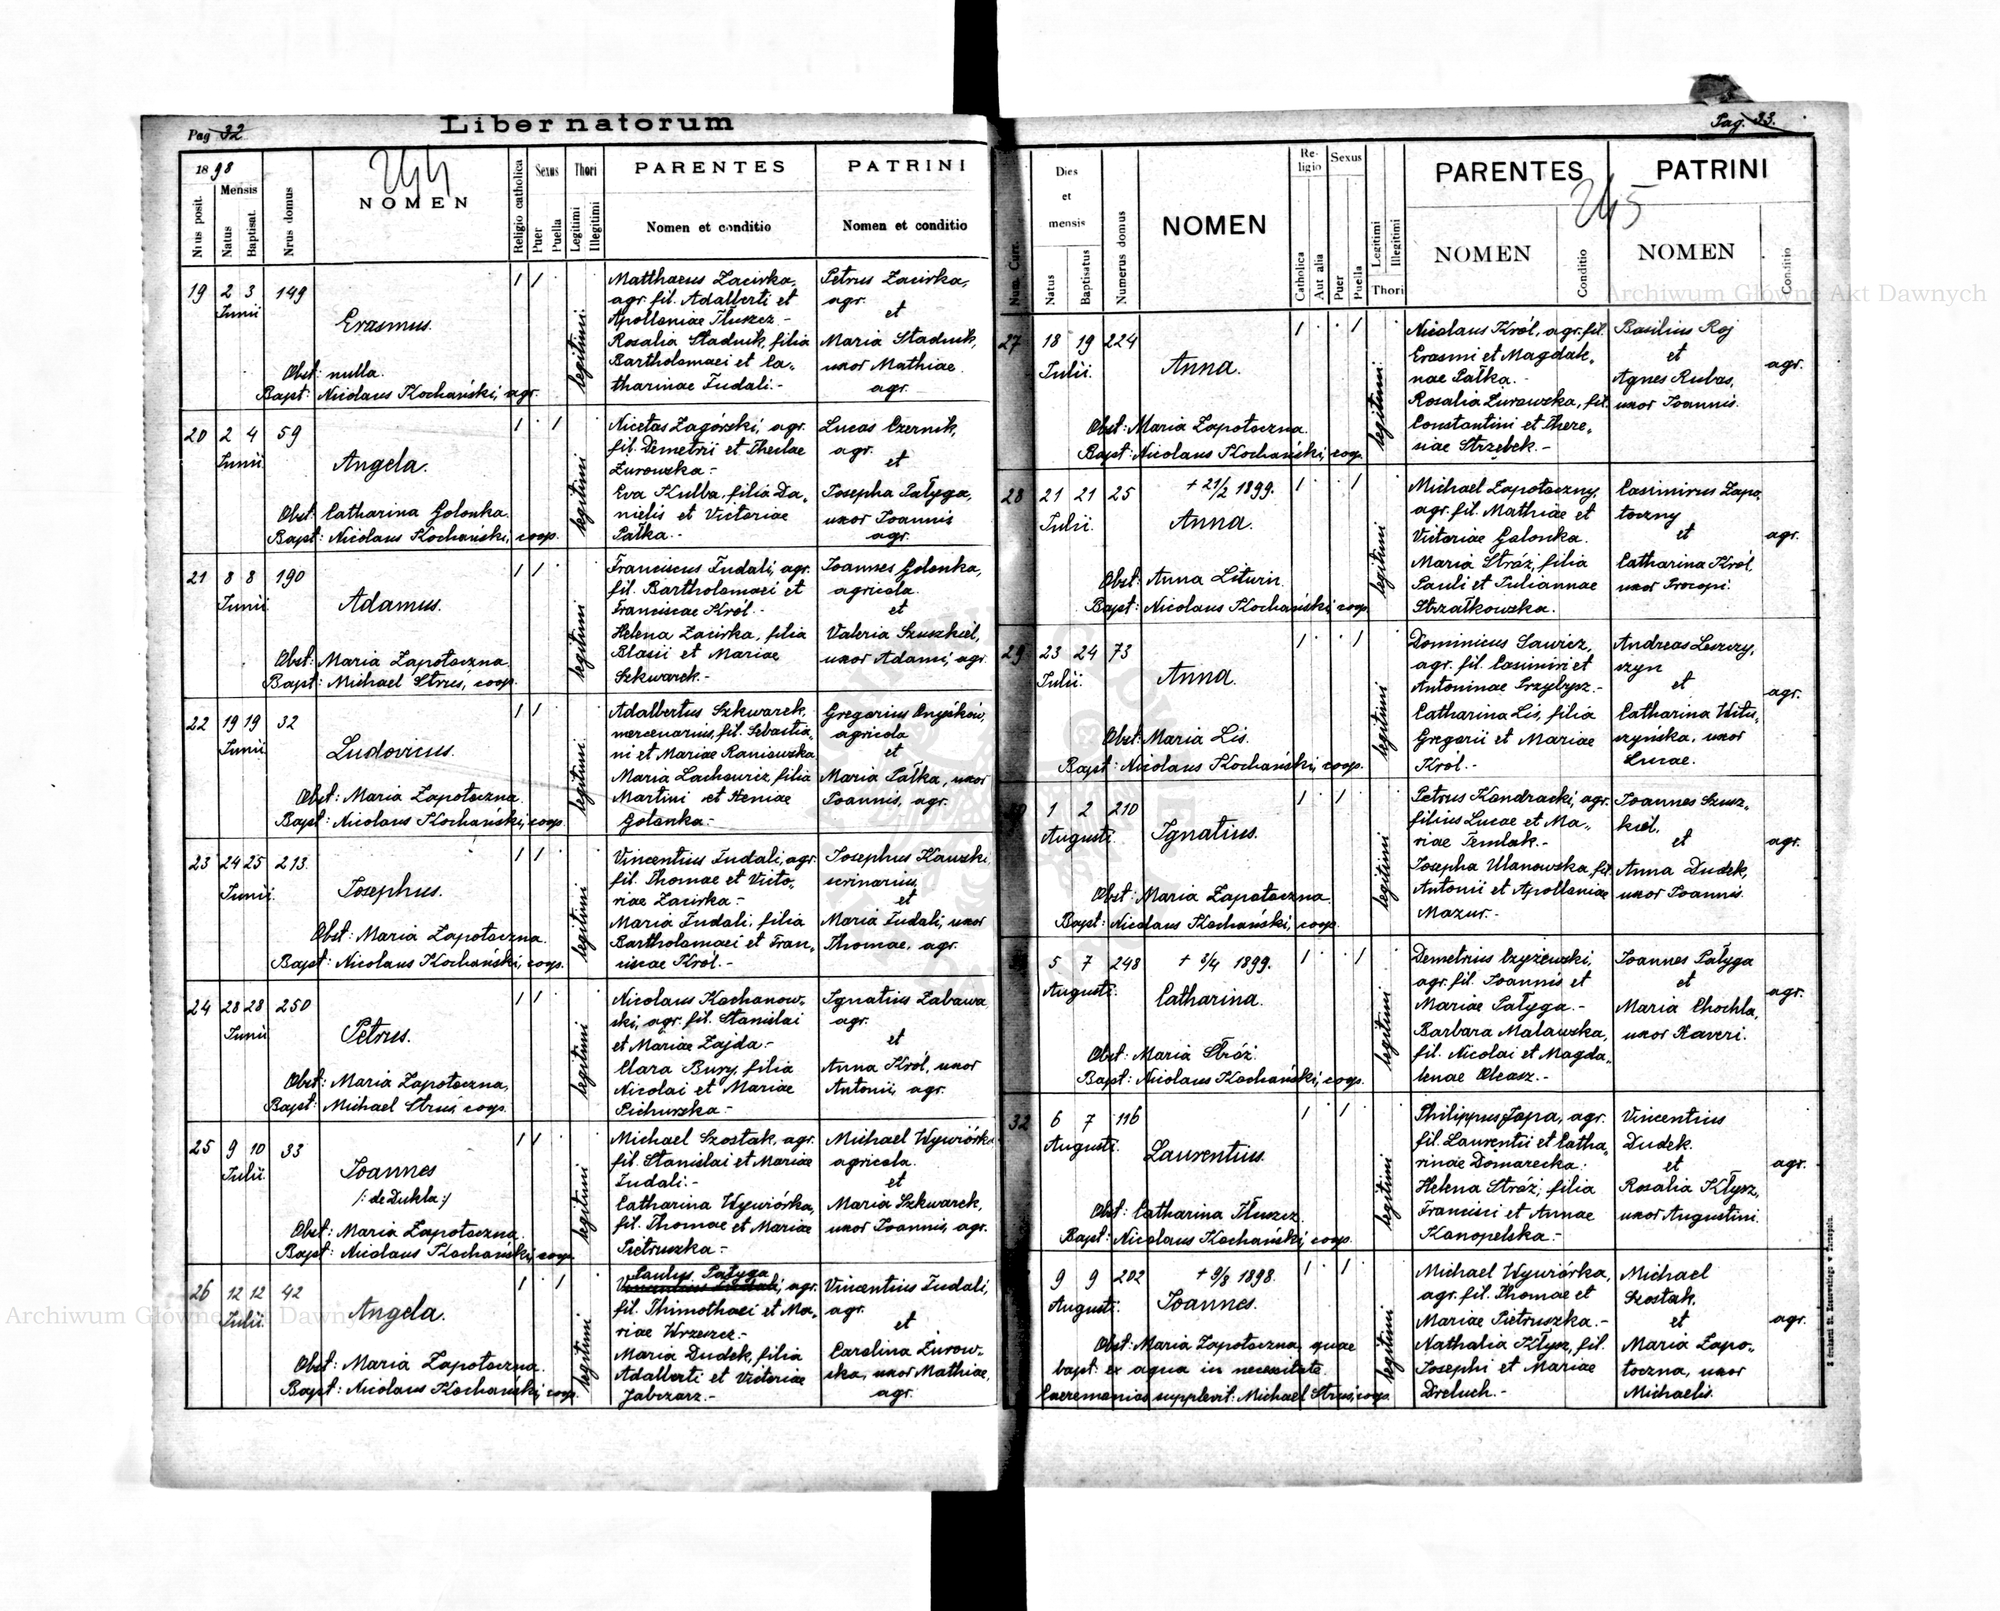 Pag 32
Liber natorum
244
1898
Nrus posit.
Mensis
Natus
Baptisat.
Nrus domus
NOMEN
Religio catholica
Sexus
Puer
Puella
Thori
Legitimi
Illegitimi
PARENTES
Nomen et conditio
PATRINI
Nomen et conditio
19 2 3 149
Junii
Erasmus.
Obst: nulla.
Bapt: Nicolaus Kochański, agr.
legitimi
Matthaeus Zacirka,
agr. fil. Adalberti et
Apolloniae Tłuszcz.-
Rosalia Stadnik, filia
Bartholomaei et Ca„
tharinae Judali.-
Petrus Zacirka,
agr.
et
Maria Stadnik,
uxor Mathiae
agr.
20 2 4 59
Junii
Angela.
Obst: Catharina Golonka.
Bapt: Nicolaus Kochański, coop.
legitimi
Nicetas Zagórski, agr.
fil. Demetrii et Theclae
Żurowska.-
Eva Kulba, filia Da„
nielis et Victoriae
Pałka.-
Lucas Czernik,
agr.
et
Josepha Pałyga,
uxor Joannis
agr.
21 8 8 190
Junii
Adamus.
Obst: Maria Zapotoczna.
Bapt: Michael Struś, coop.
legitimi
Franciscus Judali, agr.
fil. Bartholomaei et
Franciscae Król.-
Helena Zacirka, filia
Blasii et Mariae
Szkwarek.-
Joannes Golonka,
agricola.
et
Valeria Szuszkiel,
uxor Adami, agr.
22 19 19 32
Junii
Ludovicus.
Obst: Maria Zapotoczna.
Bapt: Nicolaus Kochański, coop.
legitimi
Adalbertus Szkwarek,
mercenarius, fil. Sebastia„
ni et Mariae Raniowska
Maria Lachowicz, filia
Martini et Xeniae
Golonka.-
Gregorius Onyśków,
agricola
et
Maria Pałka, uxor
Joannis, agr.
23 24 25 213
Junii
Josephus.
Obst: Maria Zapotoczna.
Bapt: Nicolaus Kochański, coop.
legitimi
Vincentius Judali, agr.
fil. Thomae et Victo„
riae Zacirka.-
Maria Judali, filia
Bartholomaei et Fran„
ciscae Król.-
Josephus Kawzki
scrinarius,
et
Maria Judali, uxor
Thomae, agr.
24 28 28 250
Junii
Petrus.
Obst: Maria Zapotoczna,
Bapt: Michael Struś, coop.
legitimi
Nicolaus Kochanow-
ski, agr. fil. Stanislai
et Mariae Zajda.-
Clara Bury, filia
Nicolai et Mariae
Pichurska.-
Ignatius Zabawa,
agr.
et
Anna Król, uxor
Antonii, agr.
25 9 10 33
Julii
Joannes
/: de Dukla :/
Obst: Maria Zapotoczna.
Bapt: Nicolaus Kochański, coop.
legitimi
Michael Szostak, agr.
fil. Stanislai et Mariae
Judali.-
Catharina Wywiórka,
fil. Thomae et Mariae
Pietruszka.-
Michael Wywiórka
agricola.
et
Maria Szkwarek,
uxor Joannis, agr.
26 12 12 42
Julii
Angela.
Obst: Maria Zapotoczna.
Bapt: Nicolaus Kochański, coop.
legitimi
Paulus Pałyga
agr.
fil. Thimothaei et Ma„
riae Wrzeszcz.-
Maria Dudek, filia
Adalberti et Victoriae
Jabczarz.-
Vincentius Judali,
agr.
et
Carolina Żurow-
ska, uxor Mathiae,
agr.
Pag. 33.
245
Num. Curr.
Dies
et
mensis
Natus
Baptisatus
Numerus domus
NOMEN
Re-
ligio
Catholica
Aut alia
Sexus
Puer
Puella
Legitimi
Illegitimi
Thori
PARENTES
NOMEN
Conditio
PATRINI
NOMEN
Conditio
27 18 19 224
Julii.
Anna.
Obst: Maria Zapotoczna.
Bapt: Nicolaus Kochański, coop.
legitimi
Nicolaus Król, agr. fil.
Erasmi et Magdale„
nae Pałka.-
Rosalia Żurowska, fil.
Constantini et There„
siae Strzebek.-
Basilius Roj
et
Agnes Rubas,
uxor Joannis.
agr.
28 21 21 25
Julii.
+ 21/2 1899.
Anna.
Obst: Anna Liturin.
Bapt: Nicolaus Kochański, coop.
legitimi
Michael Zapotoczny,
agr. fil. Mathiae et
Victoriae Golonka.
Maria Stróż, filia
Pauli et Juliannae
Strzałkowska.
Casimirus Zapo„
toczny
et
Catharina Król,
uxor Procopi.
agr.
29 23 24 73
Julii.
Anna.
Obst: Maria Lis.
Bapt: Nicolaus Kochański, coop.
legitimi
Dominicus Sawicz,
agr. fil. Casimiri et
Antoninae Przybysz.-
Catharina Lis, filia
Gregorii et Mariae
Król.-
Andreas Leszczy„
szyn
et
Catharina Witu„
szyńska, uxor
Lucae.
agr.
30 1 2 210
Augusti.
Ignatius.
Obst: Maria Zapotoczna.
Bapt: Nicolaus Kochański, coop.
legitimi
Petrus Kondracki, agr.
filius Lucae et Ma„
riae Temlak.-
Josepha Ulanowska, fil.
Antonii et Apolloniae
Mazur.-
Joannes Szusz„
kiel,
et
Anna Dudek,
uxor Joannis.
agr.
5 7 248
Augusti.
+ 8/4 1899.
Catharina.
Obst: Maria Stróż.
Bapt: Nicolaus Kochański, coop.
legitimi
Demetrius Czyżewski,
agr. fil. Joannis et
Mariae Pałyga.-
Barbara Malawska,
fil. Nicolai et Magda„
lenae Olcasz.-
Joannes Pałyga
et
Maria Chochla,
uxor Xaveri.
agr.
32 6 7 116
Augusti.
Laurentius.
Obst: Catharina Tłuszcz.
Bapt: Nicolaus Kochański, coop.
legitimi
Philippus Japa, agr.
fil. Laurentii et Catha„
rinae Domarecka.
Helena Stróż, filia
Francisci et Annae
Konopelska.-
Vincentius
Dudek.
et
Rosalia Kłysz,
uxor Augustini.
agr.
9 9 202
Augusti.
+ 9/8 1898.
Joannes.
Obst: Maria Zapotoczna, quae
bapt: ex aqua in necessitate.
Caeremonias supplevit: Michael Struś, coop.
legitimi
Michael Wywiórka,
agr. fil. Thomae et
Mariae Pietruszka.-
Nathalia Kłysz, fil.
Josephi et Mariae
Dreluch.-
Michael
Szostak,
et
Maria Zapo„
toczna, uxor
Michaelis.
agr.
Z drukarni St. Kossowskiego w Tarnopolu.
Archiwum Główne Akt Dawnych
Archiwum Główne Akt Dawnych